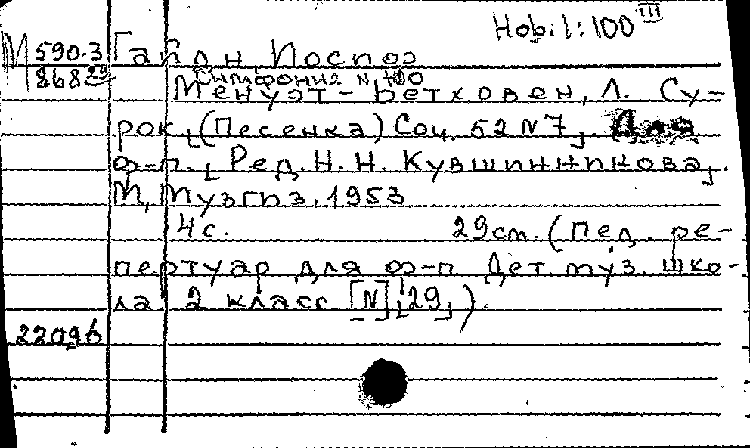 Hobil:100 III
М 590-3 Гайдн, Иоспоз
868 29 Симфония N 100
Менуэт-Бетховен, Л. Су-
рок, (Песенка) Соч. 52 N 7, Для
ф-п. [Ред. Н. Н. Кувшинникова].
М, Музгиз, 1953
4 с. 29 см. (Пед. ре-
пертуар для ф-п. Дет. муз. шко-
ла 2 класс [N] [29])
22096